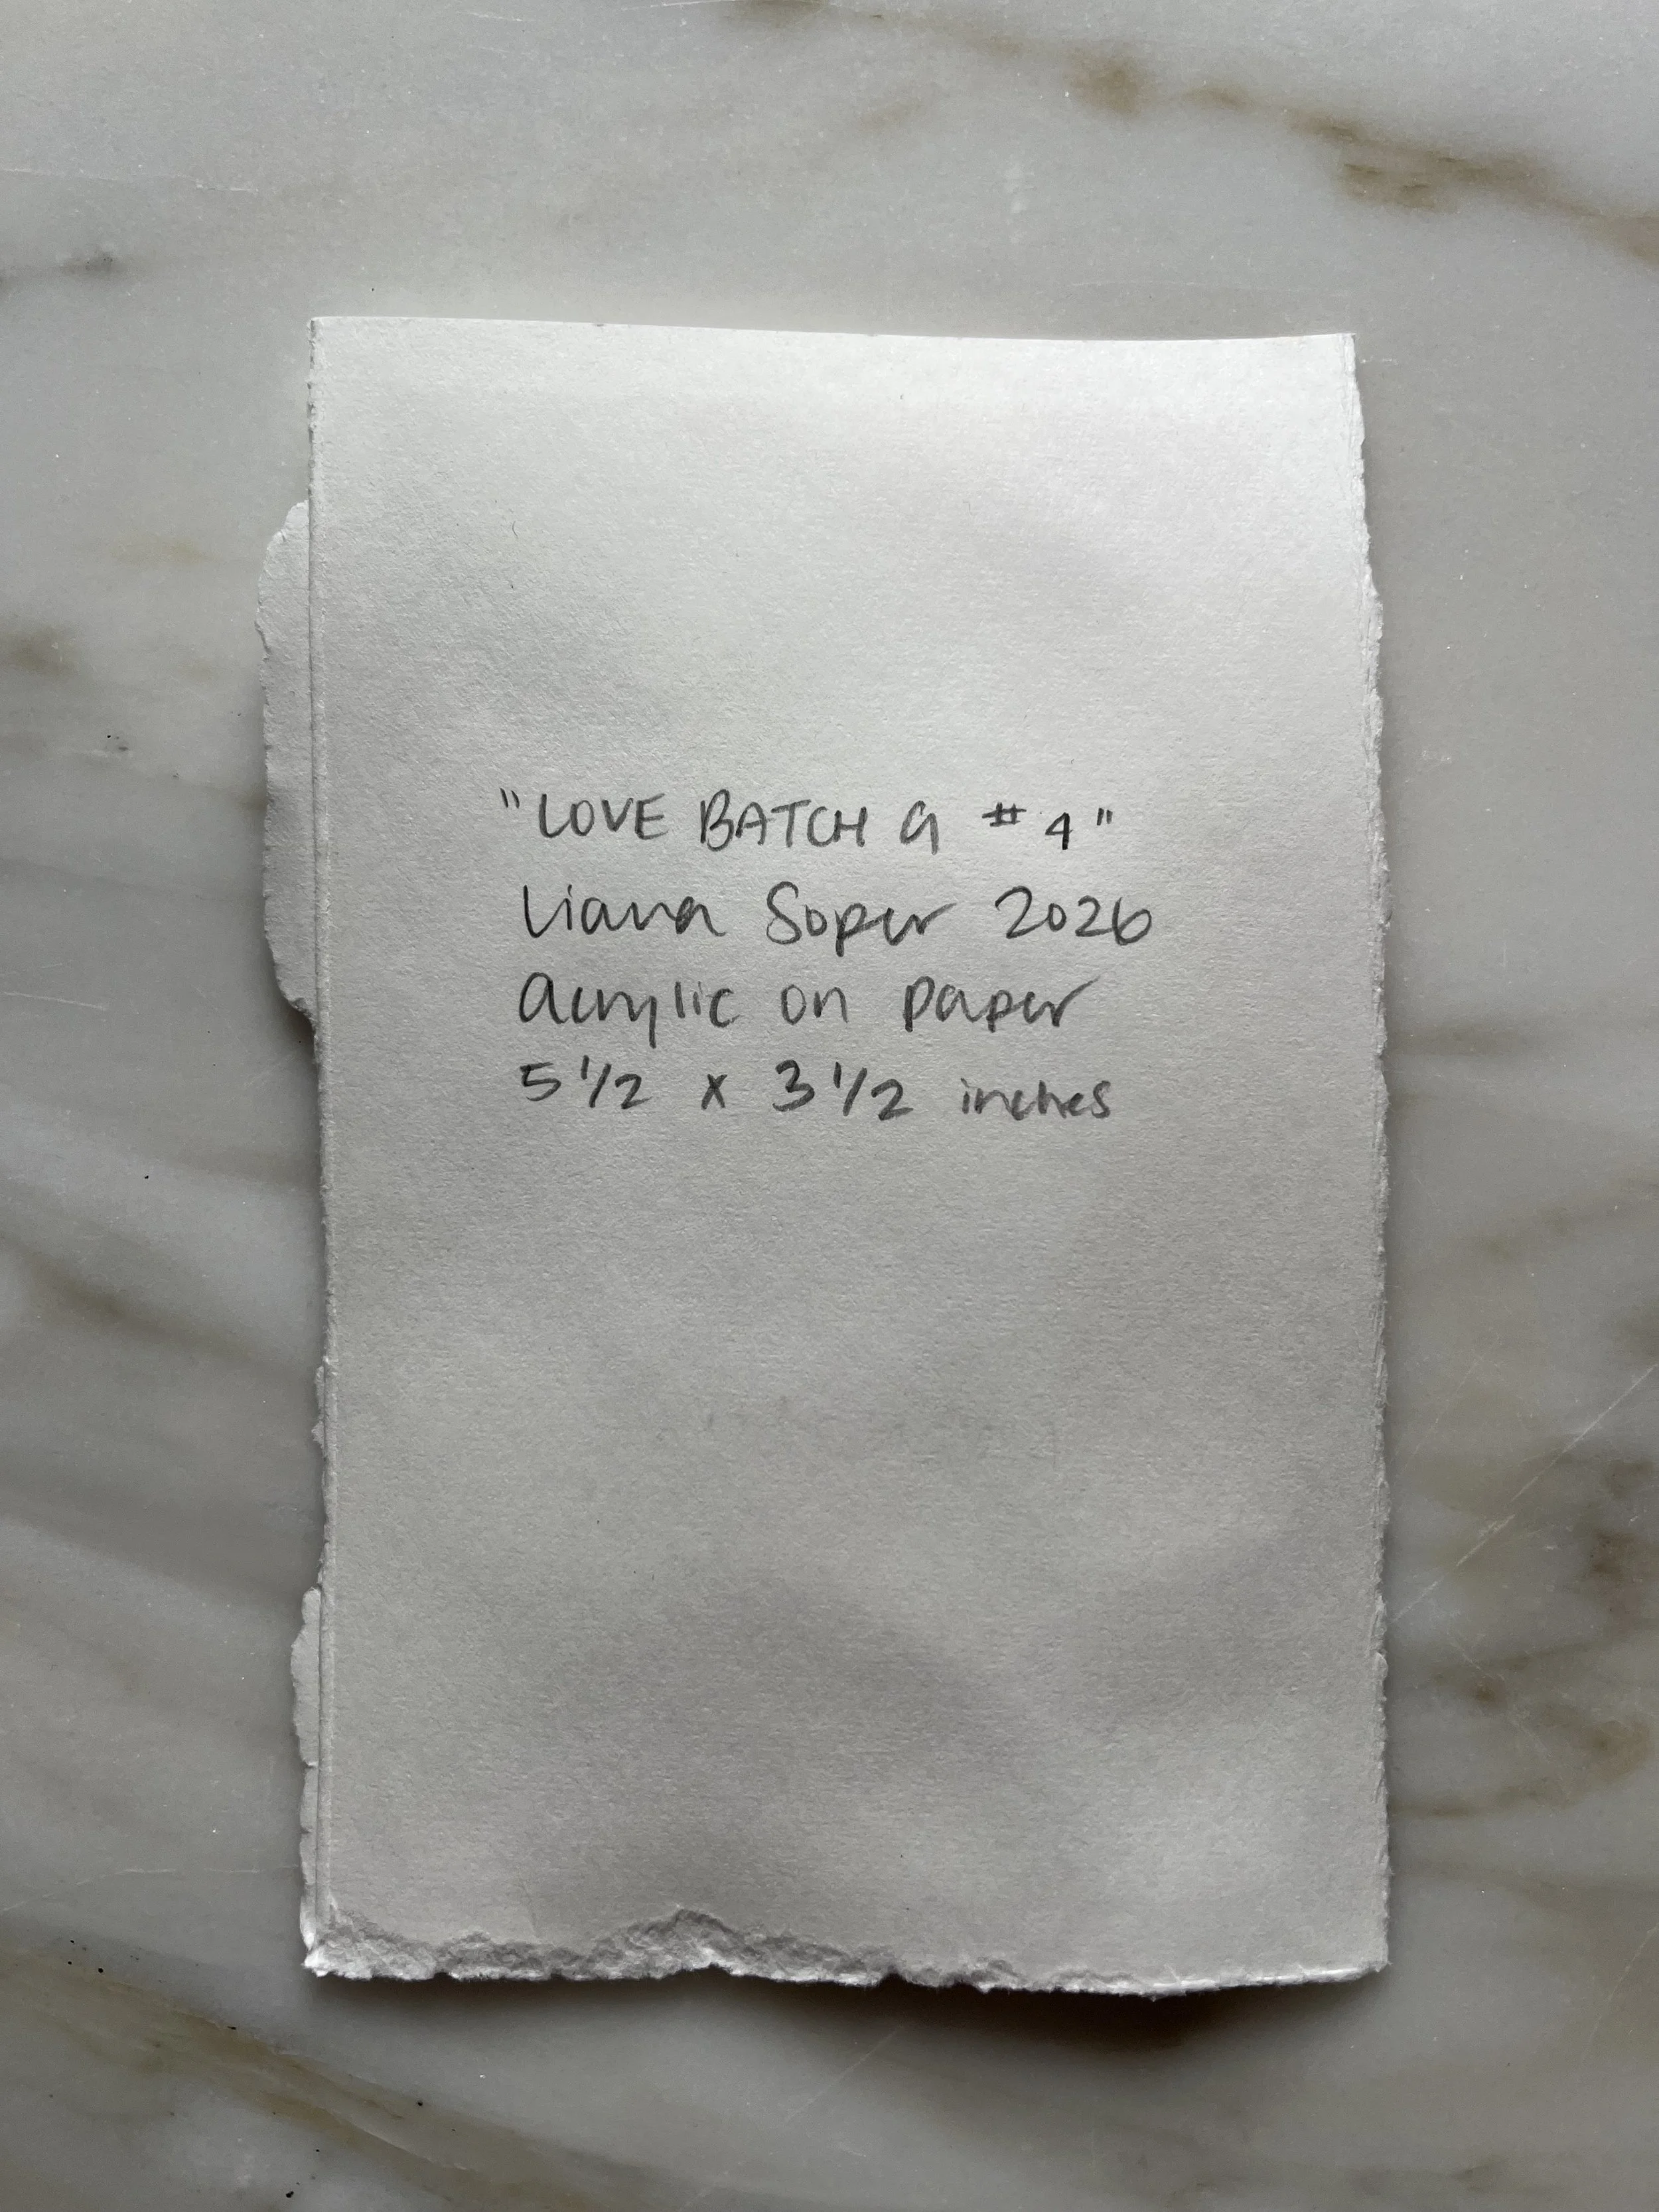 "LOVE BATCH 9 #4"
Liana Soper 2026
Acrylic on paper
5 1/2 x 3 1/2 inches